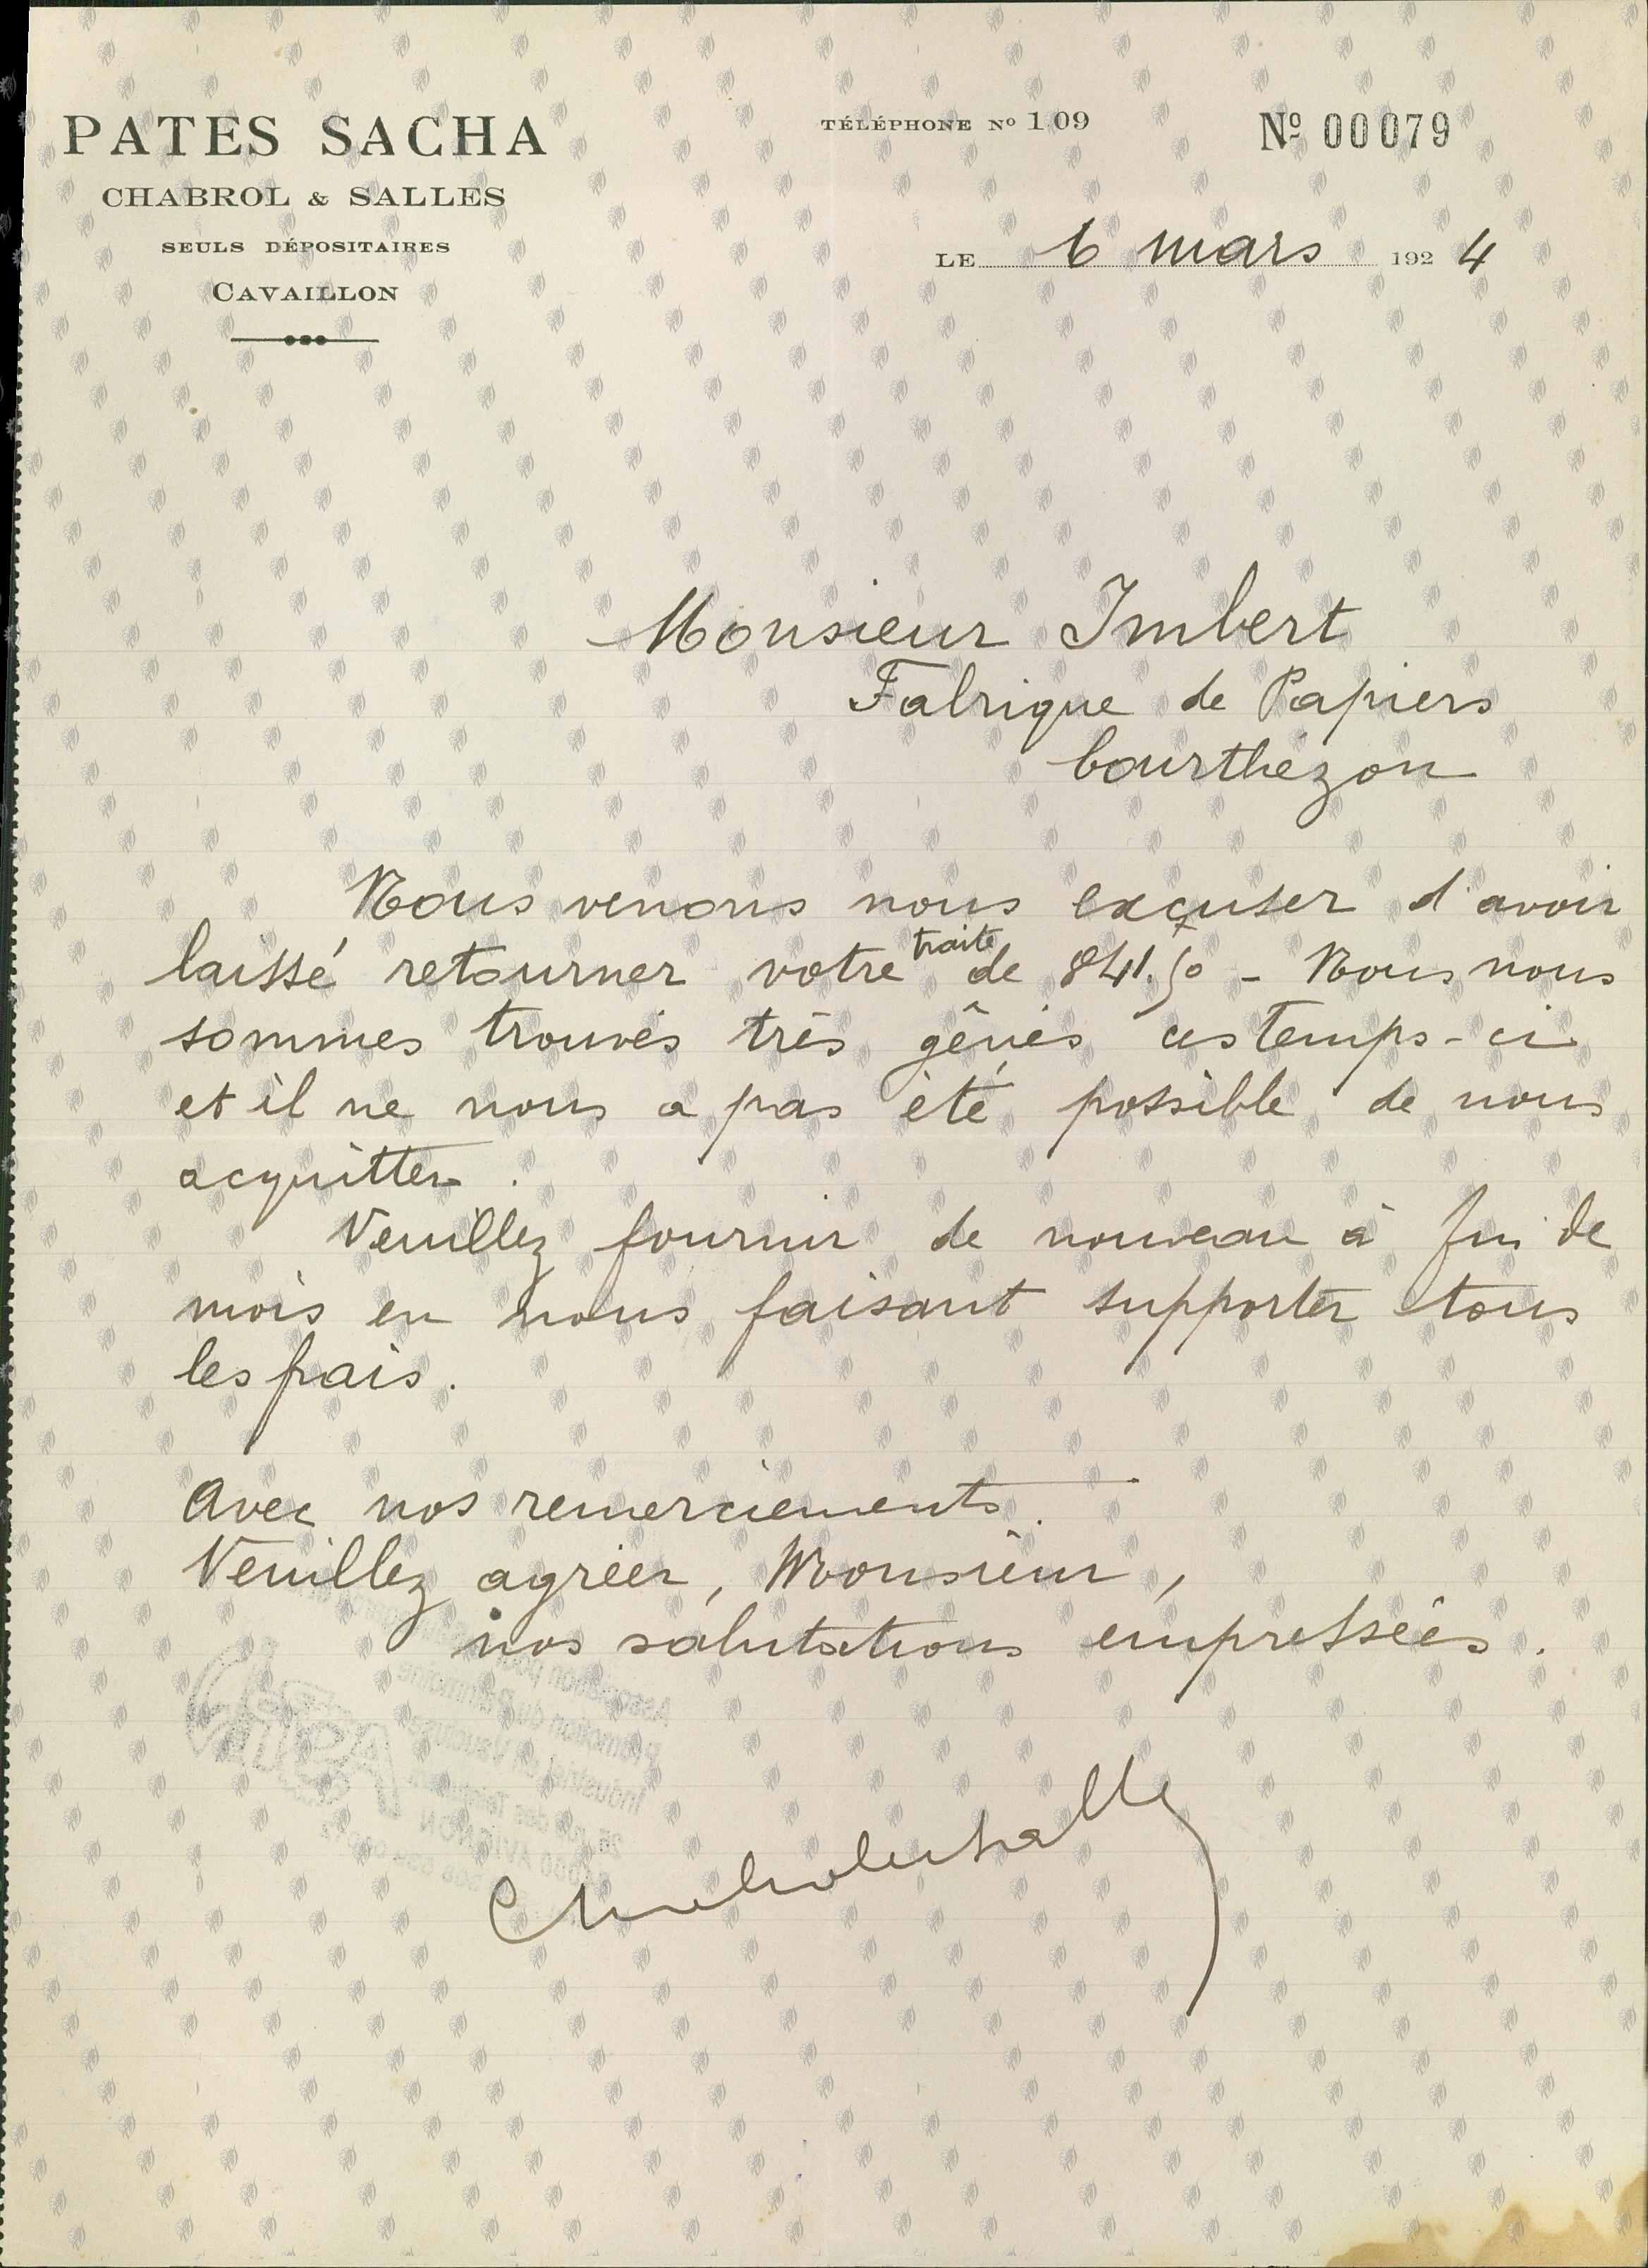 PATES SACHA
CHABROL & SALLES
SEULS DÉPOSITAIRES
CAVAILLON
TÉLÉPHONE Nº 109
Nº 00079
LE 6 mars 1924
Monsieur Imbert
Fabrique de Papiers
Courthézon
Nous venons nous excuser d'avoir
laissé retourner votre traite de 841.50 - Nous nous
sommes trouvés très gênés ces temps-ci
et il ne nous a pas été possible de nous
acquitter.
Veuillez fournir de nouveau à fin de
mois en nous faisant supporter tous
les frais.
Avec nos remerciements.
Veuillez agréer, Monsieur,
nos salutations empressées.
Association pour la
Promotion du Patrimoine
Industriel en Vaucluse
AVIGNON